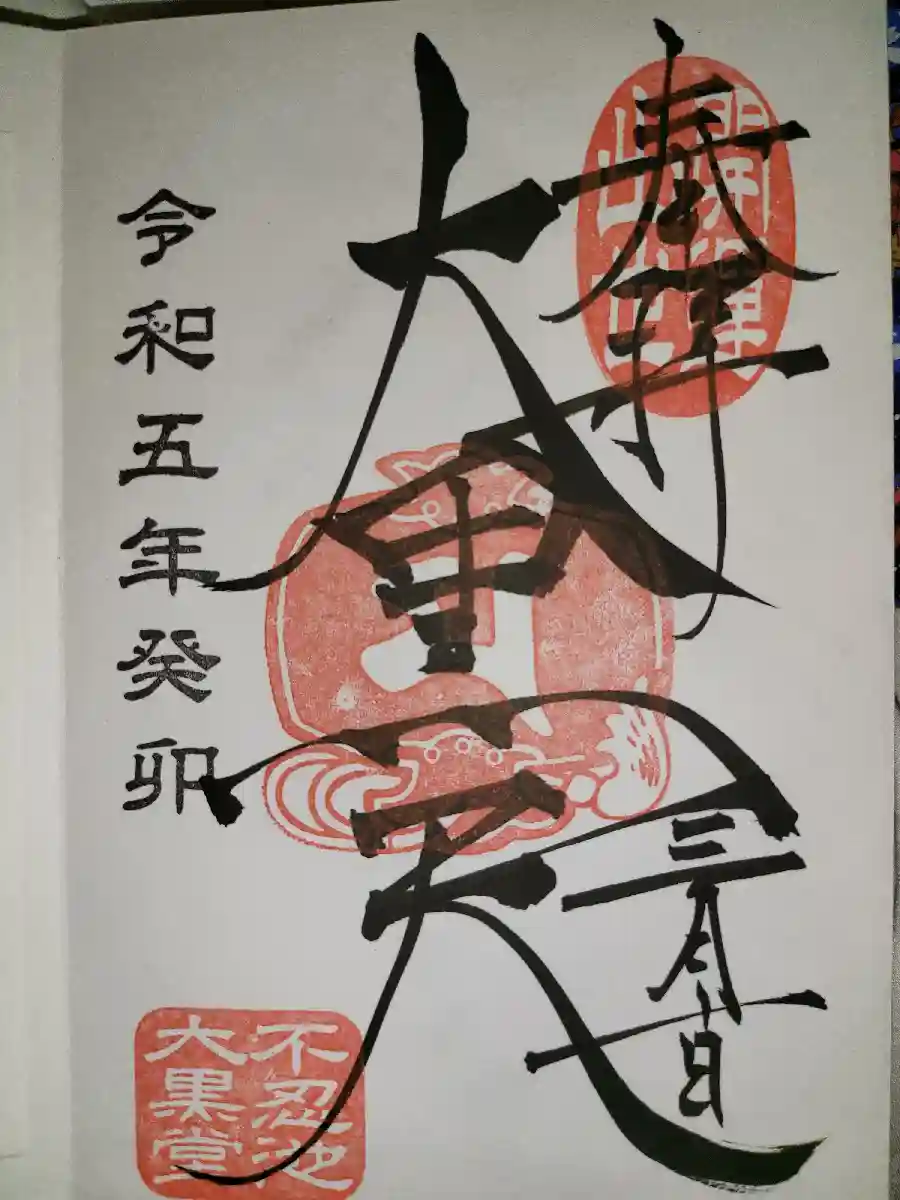 奉拝
三月廿日
大黒天
令和五年癸卯
不忍池
大黒堂